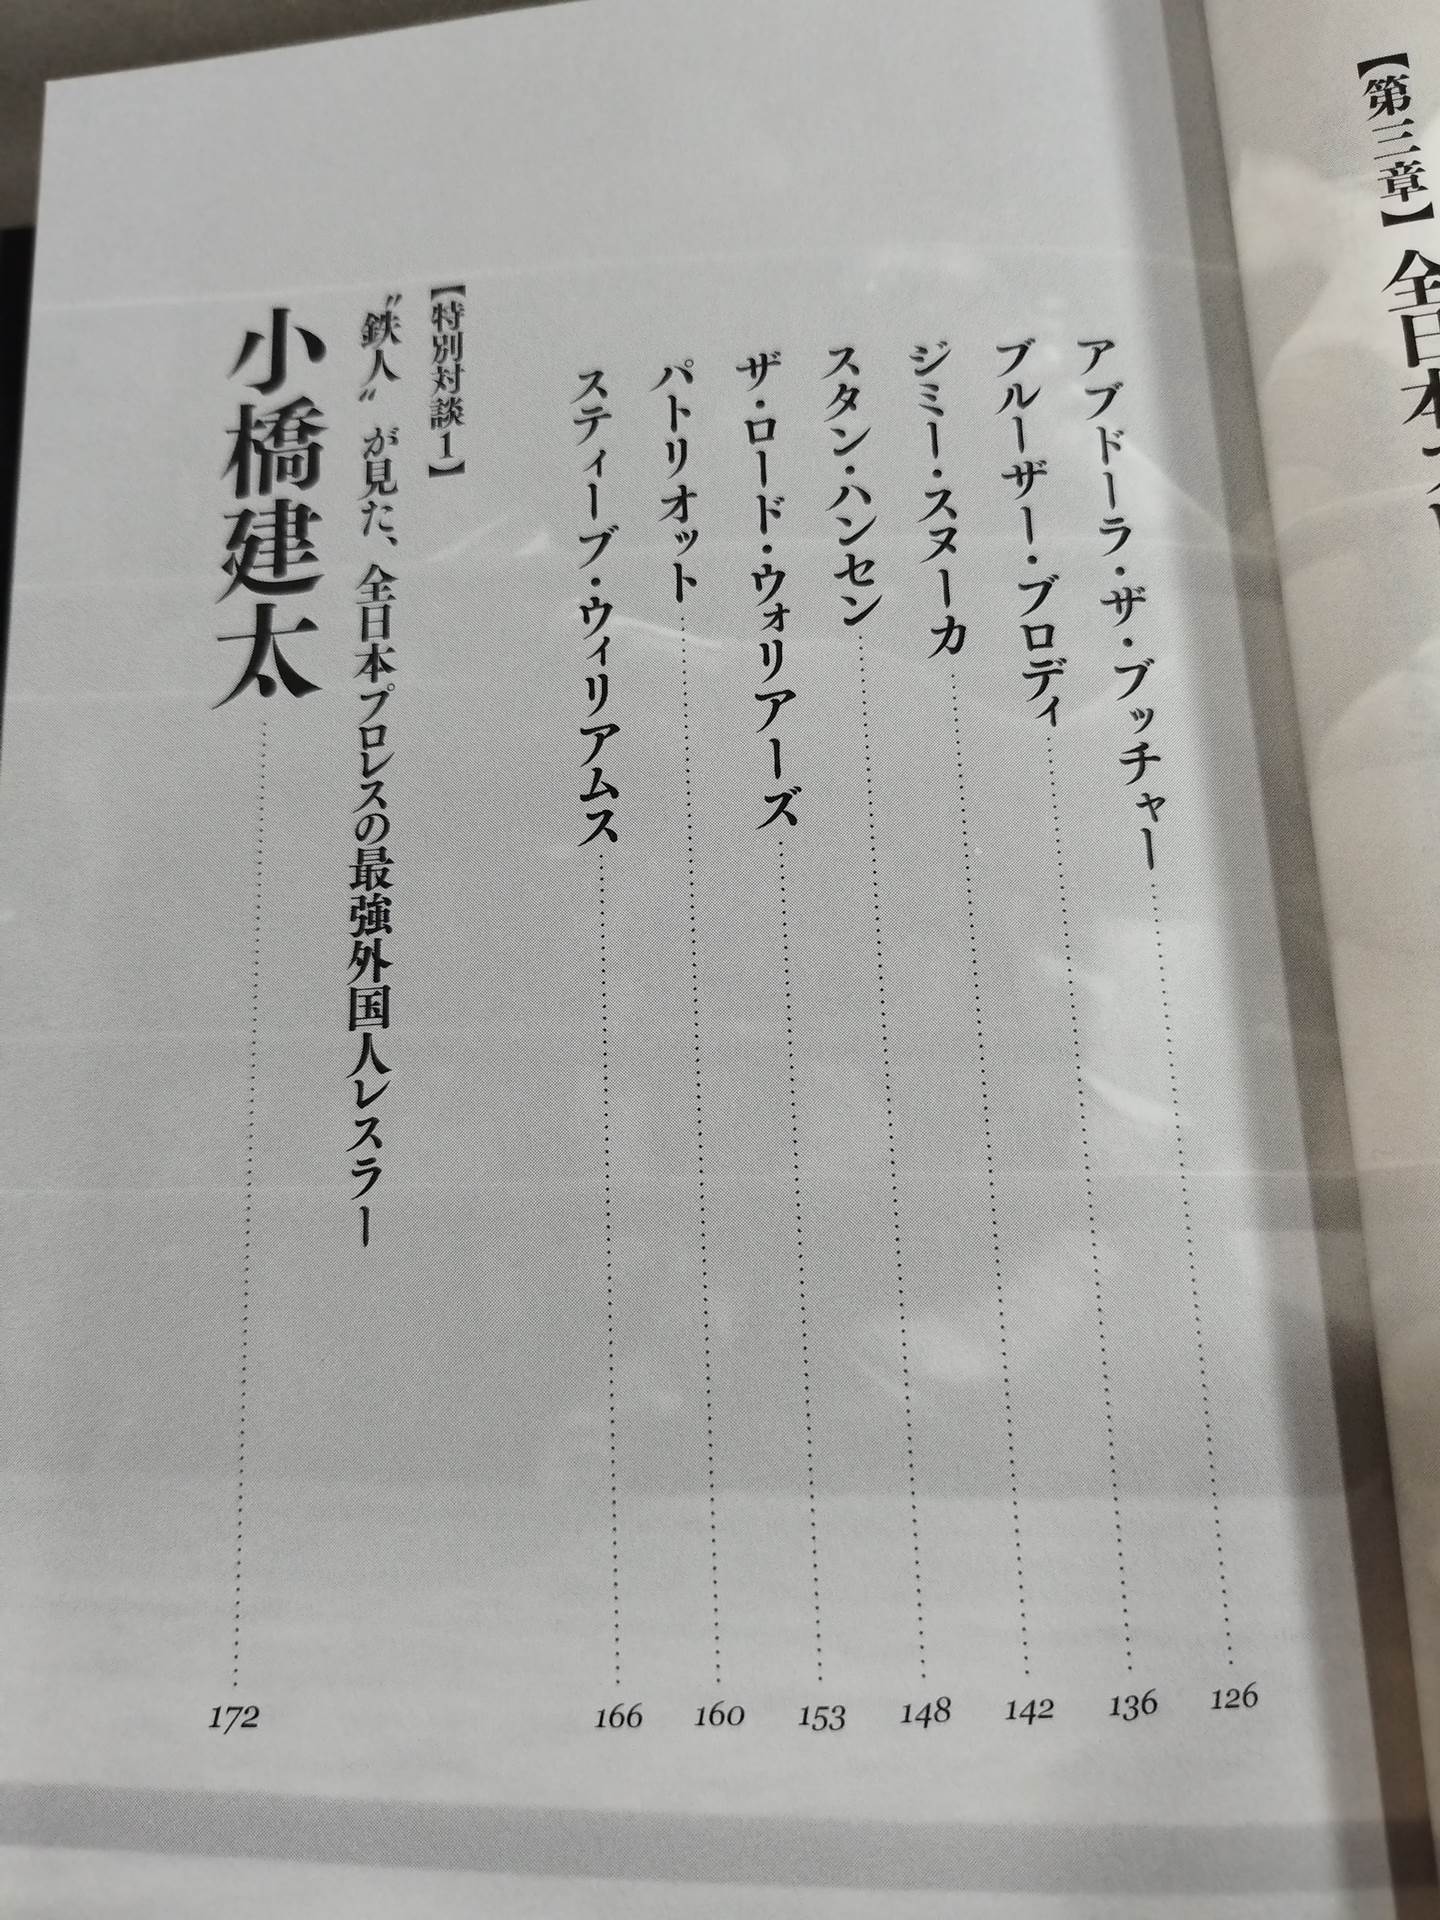 【第三章】全日本プ
アブドーラ・ザ・ブッチャー……126
ブルーザー・ブロディ……136
ジミー・スヌーカ……142
スタン・ハンセン……148
ザ・ロード・ウォリアーズ……153
パトリオット……160
スティーブ・ウィリアムス……166
【特別対談1】
〝鉄人〟が見た、全日本プロレスの最強外国人レスラー
小橋建太……172